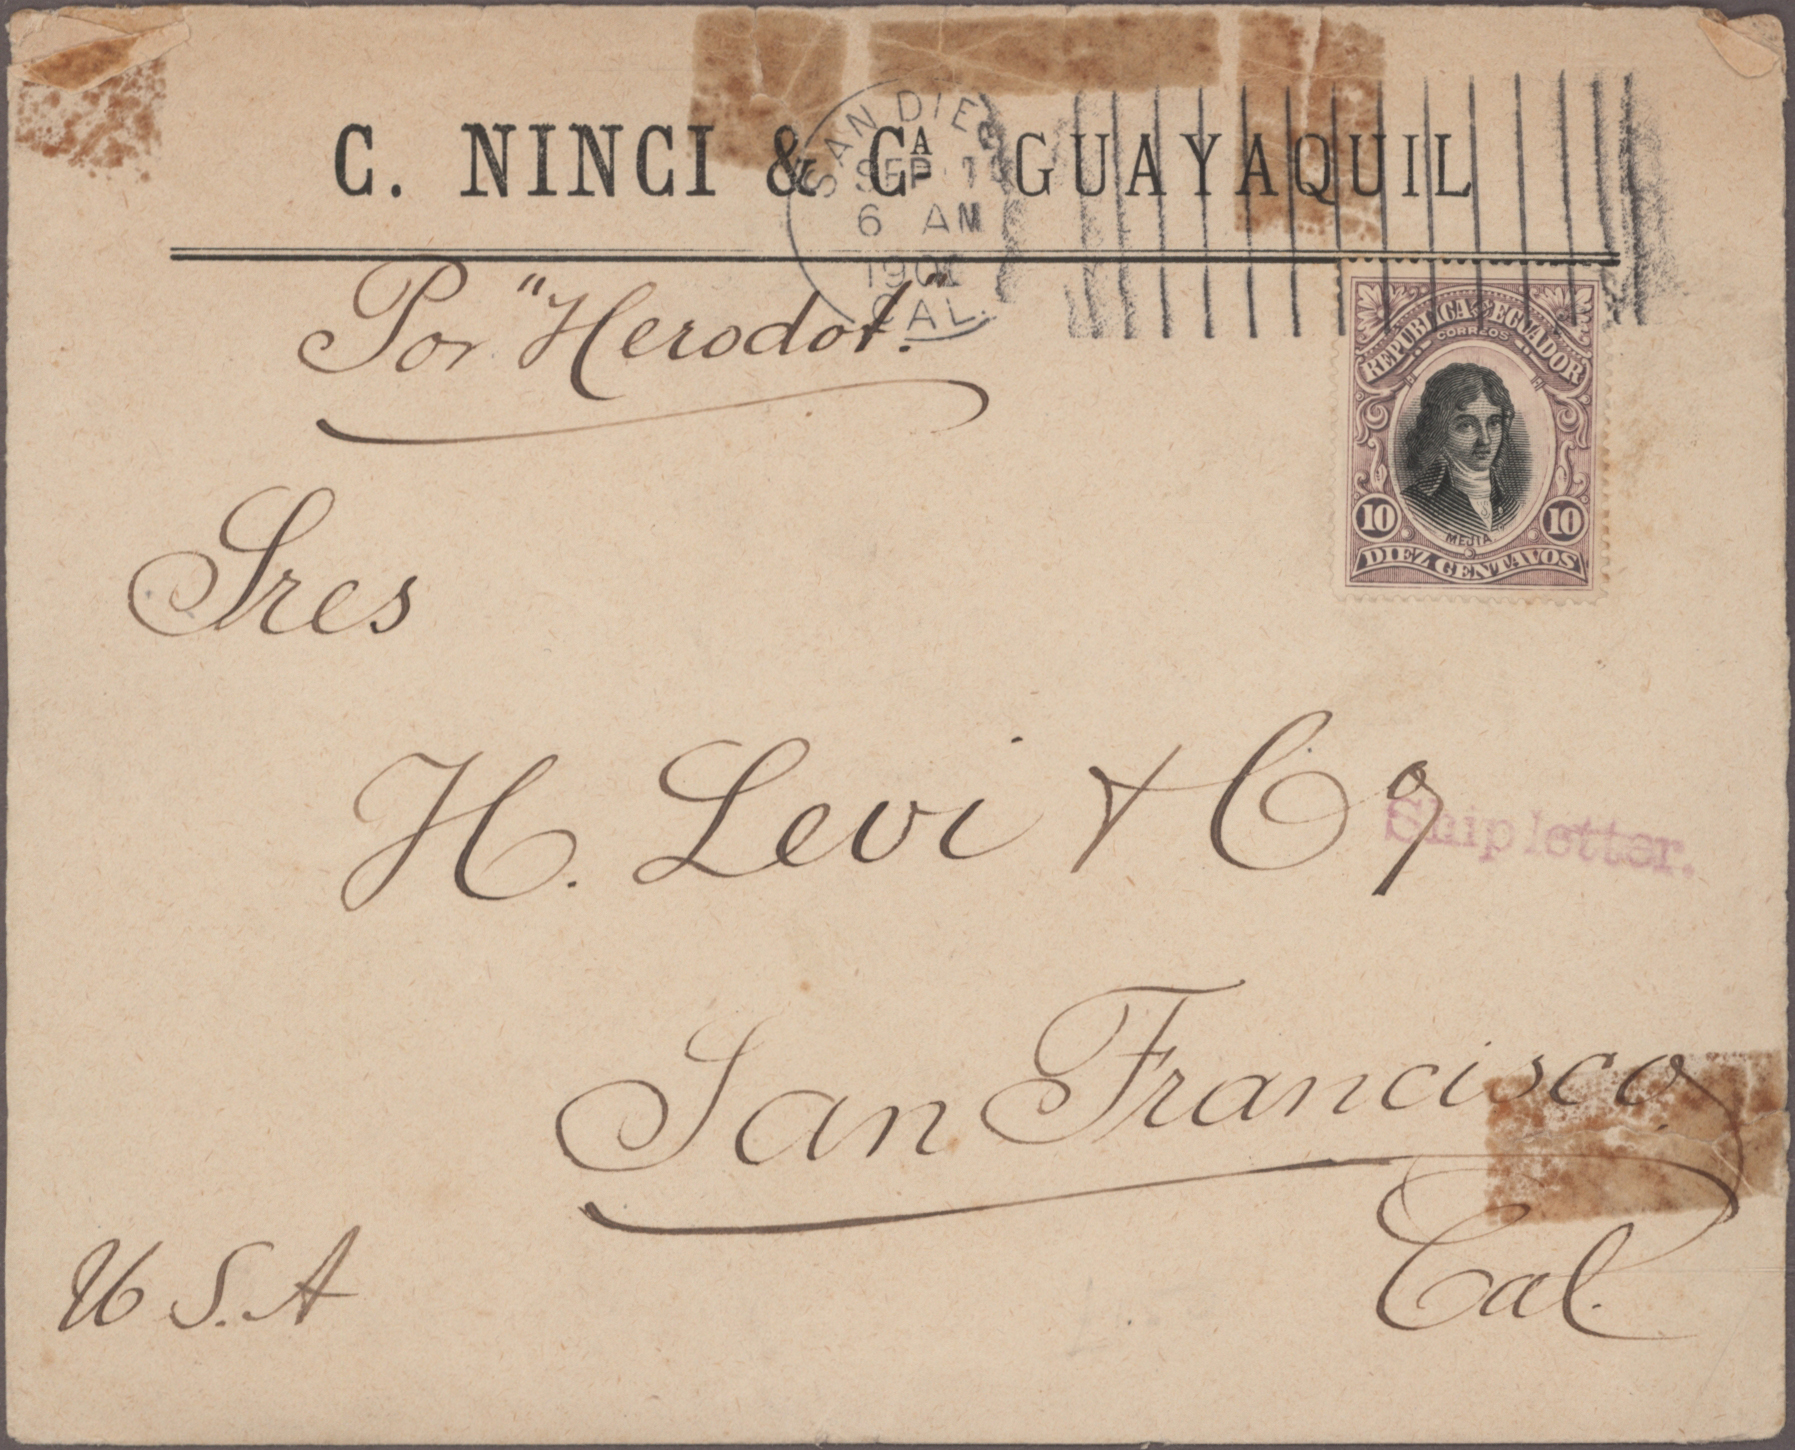 C. NINCI & Cᴬ GUAYAQUIL
SAN DIEGO
SEP 1
6 AM
CAL.
Por "Herodot."
REPUBLICA DEL ECUADOR
CORREOS
MEJIA
10 10
DIEZ CENTAVOS
Sres
H. Levi & Cº
Ship letter.
San Francisco
Cal.
U.S.A